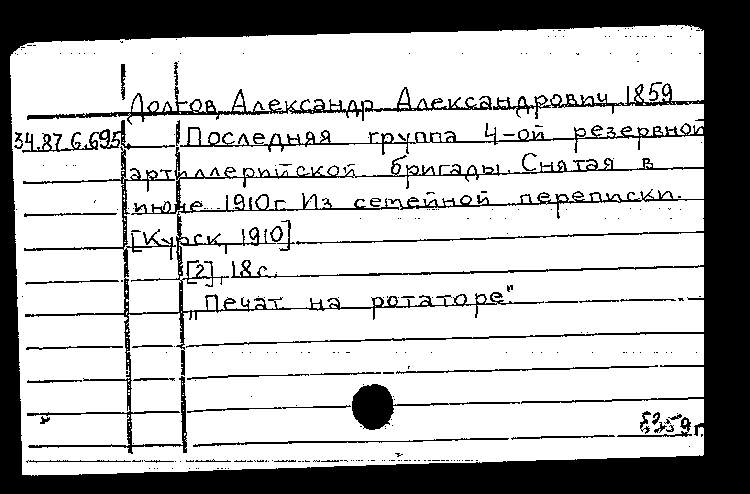 Долгов, Александр Александрович, 1859
34.87.6.695. Последняя группа 4-ой резервной
артиллерийской бригады. Снятая в
июне 1910г. Из семейной переписки.
[Курск, 1910].
[2], 18 с.
„Печат. на ротаторе"